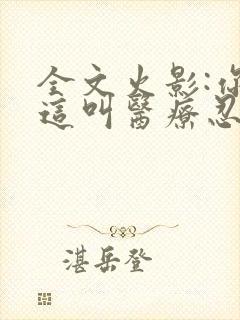 全文火影:你
這叫醫療忍
湛岳登